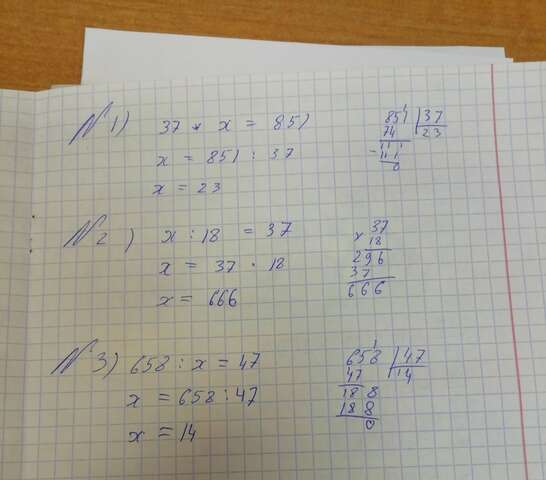 N 1) 37 * x = 851
x = 851 : 37
x = 23
851 | 37
74 | 23
111
- 111
0
N 2) x : 18 = 37
x = 37 · 18
x = 666
37
x 18
296
37
666
N 3) 658 : x = 47
x = 658 : 47
x = 14
658 | 47
47 | 14
188
188
0